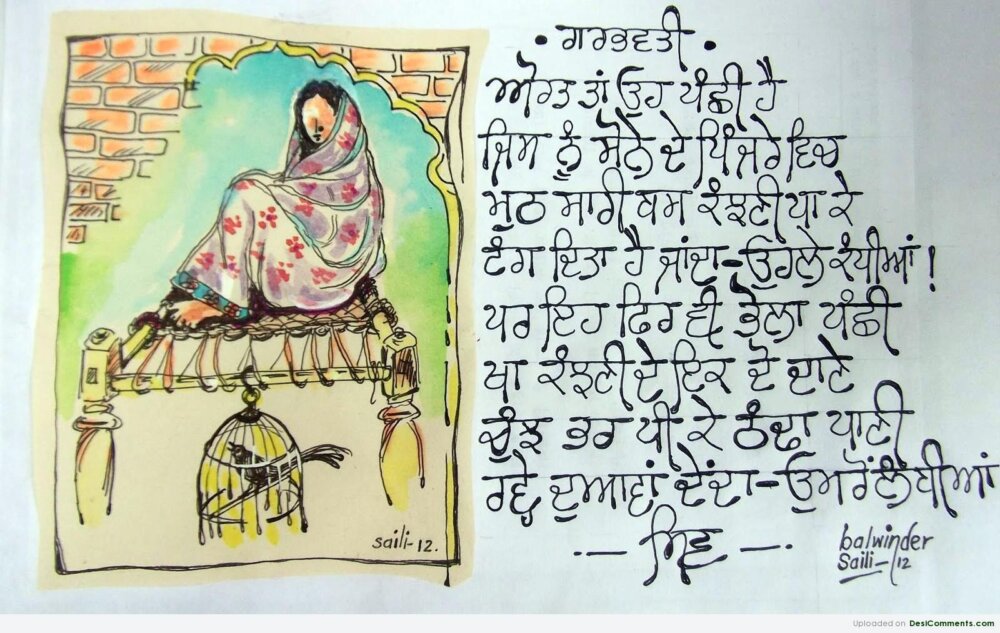 • ਗਰਭਵਤੀ •
ਔਰਤ ਤਾਂ ਉਹ ਪੰਛੀ ਹੈ
ਜਿਸ ਨੂੰ ਸੋਨੇ ਦੇ ਪਿੰਜਰੇ ਵਿਚ
ਮੁਠ ਸਾਰੀ ਬਸ ਕੰਙਣੀ ਪਾ ਕੇ
ਟੰਗ ਦਿਤਾ ਹੈ ਜਾਂਦਾ-ਉਹਲੇ ਕੰਧੀਆਂ !
ਪਰ ਇਹ ਫਿਰ ਵੀ ਭੋਲਾ ਪੰਛੀ
ਖਾ ਕੰਙਣੀ ਦੇ ਇਕ ਦੋ ਦਾਣੇ
ਚੁੰਝ ਭਰ ਪੀ ਕੇ ਠੰਢਾ ਪਾਣੀ
ਰਵ੍ਹੇ ਦੁਆਵਾਂ ਦੇਂਦਾ-ਉਮਰੋਂ ਲੰਬੀਆਂ
-- ਸ਼ਿਵ --.
balwinder
saili-12
saili-12.
Uploaded on DesiComments.com